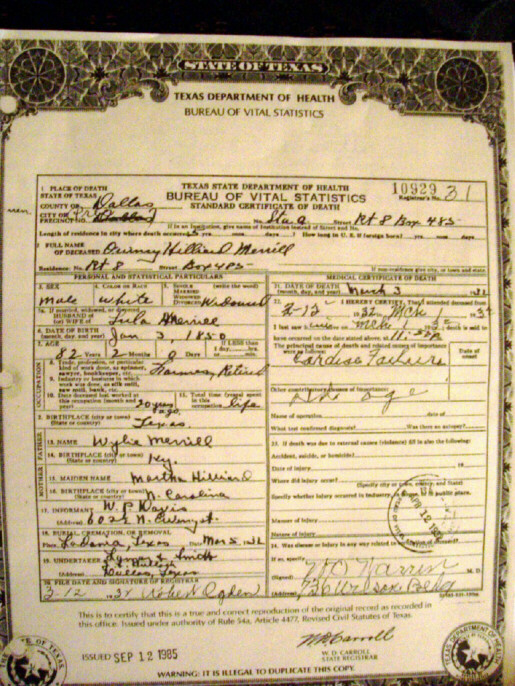 STATE OF TEXAS
TEXAS DEPARTMENT OF HEALTH
BUREAU OF VITAL STATISTICS
1. PLACE OF DEATH
STATE OF TEXAS
COUNTY OF Dallas
CITY OR PRECINCT NO. Dallas
TEXAS STATE DEPARTMENT OF HEALTH
BUREAU OF VITAL STATISTICS
STANDARD CERTIFICATE OF DEATH
10929 31
Registrar's No.
No. Sta a Street Rt 8 Box 485
If in an Institution, give name of Institution instead of Street and No.
Length of residence in city where death occurred years months days. How long in U. S. if foreign born? yrs. mos. days
2 FULL NAME OF DECEASED Quincy Hilliard Merrill
Residence: No. Rt 8 Street Box 485
If non-residence give city, or town and state.
PERSONAL AND STATISTICAL PARTICULARS
3. SEX male
4. COLOR OR RACE white
SINGLE MARRIED WIDOWED DIVORCED (write the word) Widowed
5a. If married, widowed, or divorced
HUSBAND of
(or) WIFE of Lula Merrill
6. DATE OF BIRTH (month, day, and year) Jan 3, 1850
7. AGE 82 Years 2 Months 0 Days
If LESS than 1 day, hrs. min.
OCCUPATION
8. Trade, profession, or particular kind of work done, as spinner, sawyer, bookkeeper, etc. Farmer, Retired
9. Industry or business in which work was done, as silk mill, saw mill, bank, etc.
10. Date deceased last worked at this occupation (month and year) 20 yrs ago
11. Total time (years) spent in this occupation life
12. BIRTHPLACE (city or town) (State or country) Texas
FATHER
13. NAME Wylie Merrill
14. BIRTHPLACE (city or town) (State or country) Ky.
MOTHER
15. MAIDEN NAME Martha Hilliard
16. BIRTHPLACE (city or town) (State or country) N. Carolina
17. INFORMANT W. P. Davis
(Address)
18. BURIAL, CREMATION, OR REMOVAL
Place Ladonia, Texas Mar 5, 1932
19. UNDERTAKER
(Address) Dallas, Texas
20. FILE DATE AND SIGNATURE OF REGISTRAR
3-12 1932 Ogden
MEDICAL CERTIFICATE OF DEATH
21. DATE OF DEATH (month, day, and year) March 3 1932
22. I HEREBY CERTIFY, That I attended deceased from
The principal cause of death and related causes of importance were as follows:
Date of onset
Cardiac Failure
Other contributory causes of importance:
Old age
Name of operation date of
What test confirmed diagnosis? Was there an autopsy?
23. If death was due to external causes (violence) fill in also the following:
Accident, suicide, or homicide?
Date of injury 19
Where did injury occur? (Specify city or town, county, and State)
Specify whether injury occurred in industry, public place.
Manner of injury
Nature of injury
24. Was disease or injury in any way related to occupation of deceased?
If so, specify
(Signed) M. D.
(Address)
This is to certify that this is a true and correct reproduction of the original record as recorded in
this office. Issued under authority of Rule 54a, Article 4477, Revised Civil Statutes of Texas.
ISSUED SEP 12 1985
W. D. CARROLL
STATE REGISTRAR
WARNING: IT IS ILLEGAL TO DUPLICATE THIS COPY